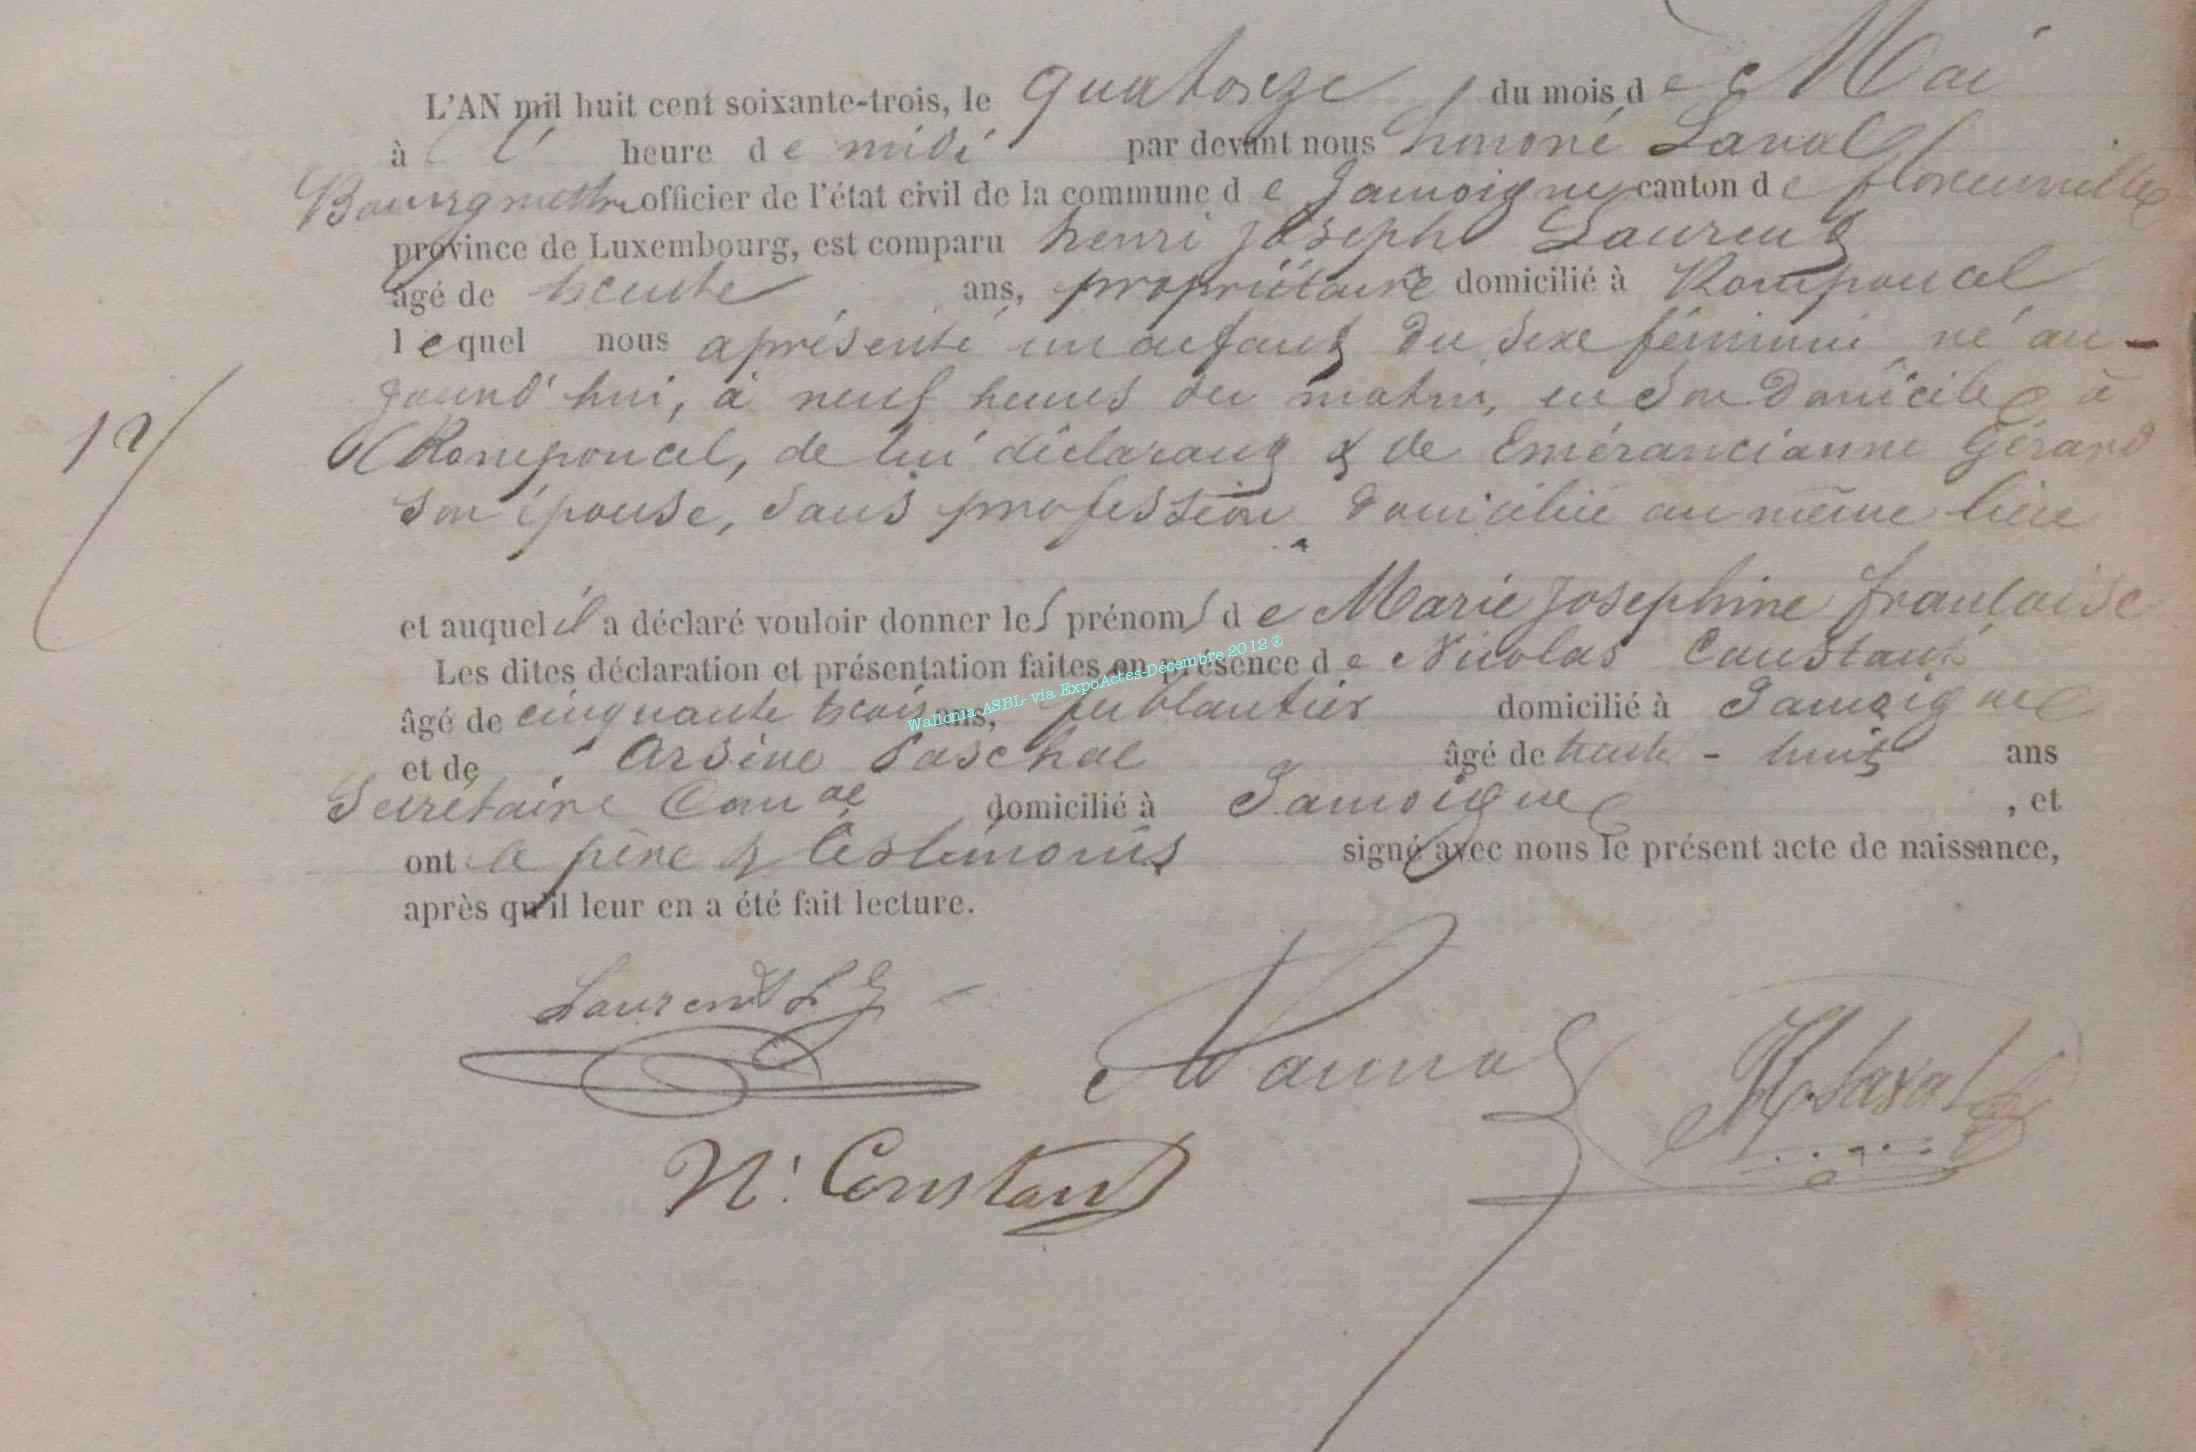 L'AN mil huit cent soixante-trois, le quatorze du mois de Mai
à l' heure de midi par devant nous honoré Laval
Bourgmestre officier de l'état civil de la commune de Jamoigne canton de florenville
province de Luxembourg, est comparu henri joseph Laurent
âgé de trente ans, propriétaire domicilié à Romponcel
lequel nous a présenté un enfant du sexe féminin né au-
jourd'hui, à neuf heures du matin, en son Domicile à
Romponcel, de lui déclarant & de Emérancianne Gérard
son épouse, sans profession domiciliée au même lieu
12
et auquel il a déclaré vouloir donner les prénoms de Marie josephine françoise
Les dites déclaration et présentation faites en présence de Nicolas Constant
Wallonia ASBL- via ExpoActes-Décembre 2012 ®
âgé de cinquante trois ans, ferblantier domicilié à Jamoigne
et de Arsène Paschal âgé de trente-huit ans
Secrétaire Com al domicilié à Jamoigne, et
ont le père & les témoins signé avec nous le présent acte de naissance,
après qu'il leur en a été fait lecture.
Laurent
H. Laval
N. Constant